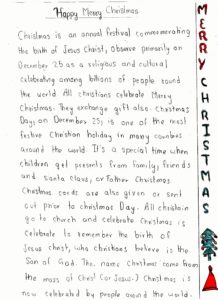 Happy Merry Christmas
Christmas is an annual festival commemorating
the birth of Jesus Christ, observe primarily on
December 25 as a religious and cultural
celebrating among billions of people round
the world All christians celebrate Merry
Christmas. They exchange gift also. Christmas
Day, on December 25, is one of the most
festive Christian holiday in many countries
around the world. It's a special time when
children get presents from family, friends
and santa claus, or Father Christmas
Christmas cards are also given or sent
out prior to christmas Day. All christain
go to church and celebrate. Christmas is
celebrate to remember the birth of
jesus christ, who christians believe is the
Son of God. The name christmas come from
the mass of Christ (or Jesus.) Christmas is
now celebrated by people around the world.
MERRY CHRISTMAS